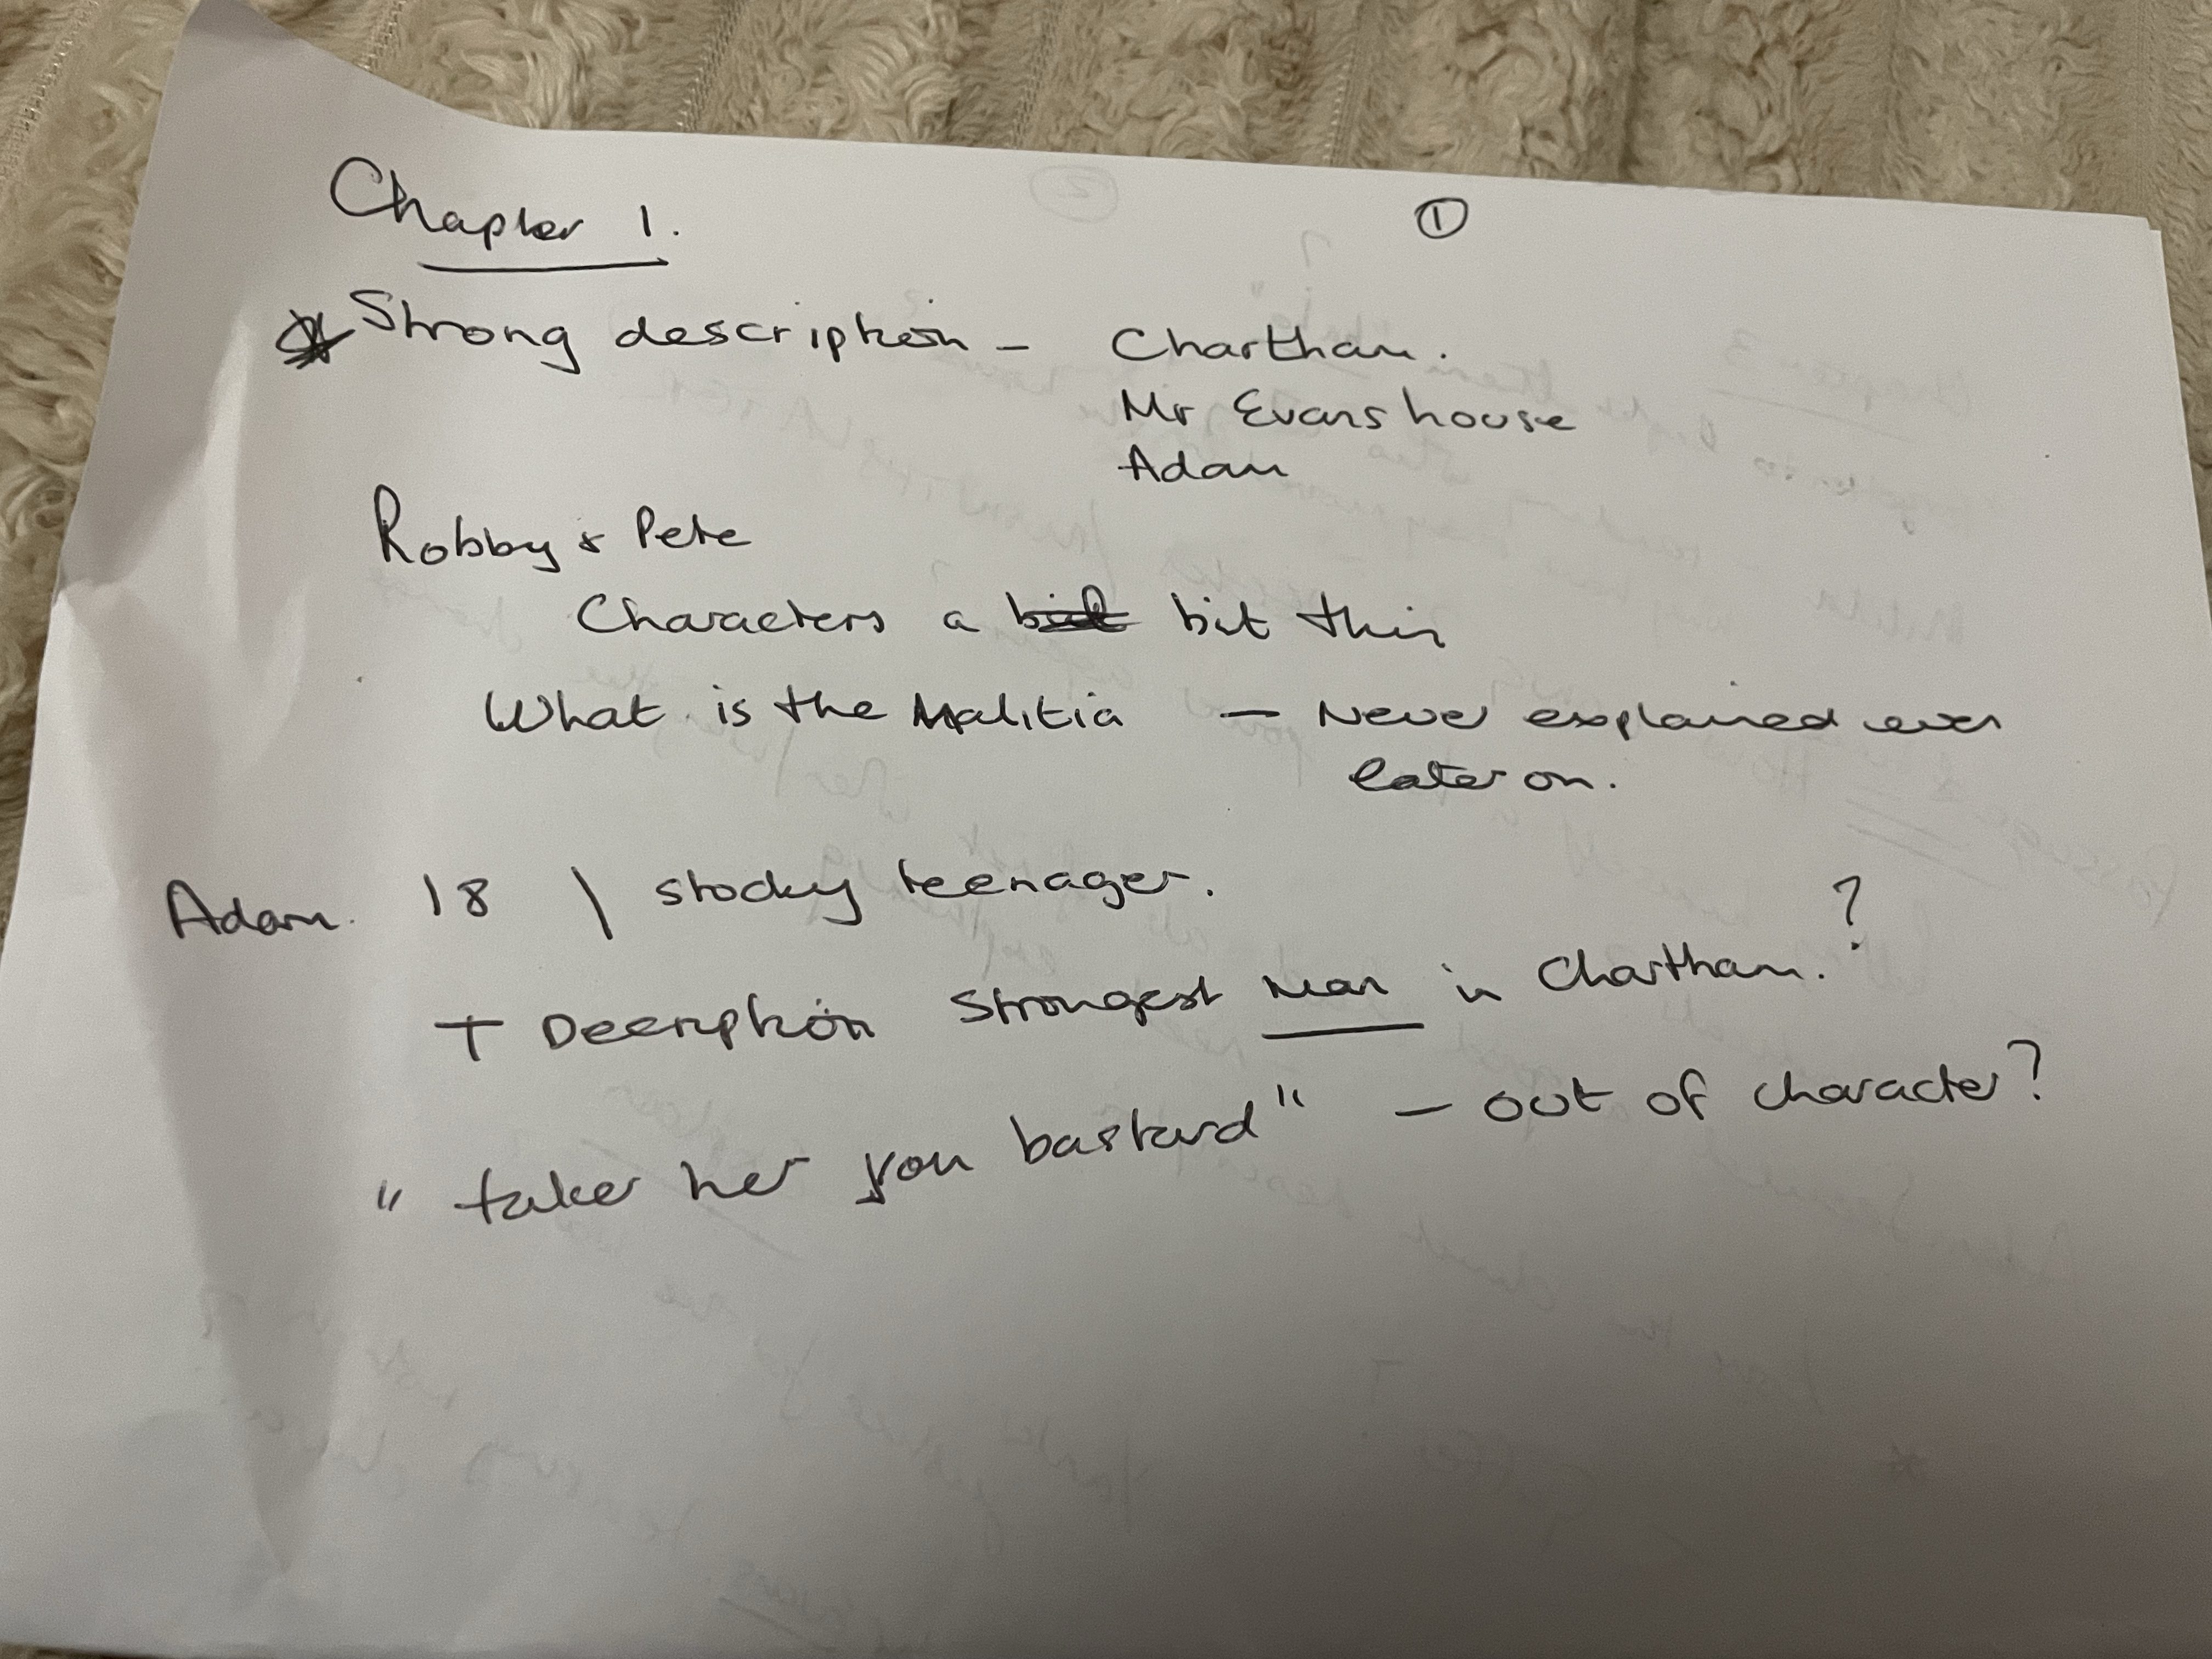 Chapter 1. ①
Strong description - Chartham.
Mr Evans house
Adam
Robby & Pete
Characters a bit thin
What is the Malitia - Never explained even
later on.
Adam. 18 \ stocky teenager.
+ Descripton Strongest Man in Chartham.?
"take her you bastard" - out of character?